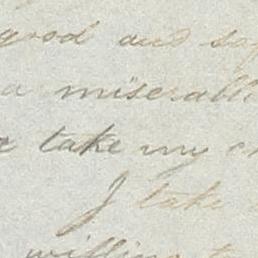 good and
a miserable
take my
I take
willing to